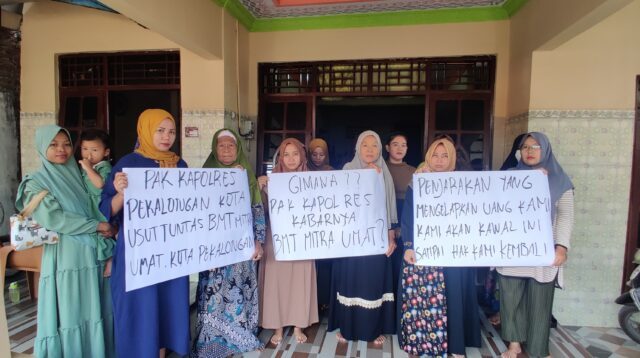 PAK KAPOLRES
PEKALONGAN KOTA
USUT TUNTAS BMT MITRA
UMAT. KOTA PEKALONGAN
GIMANA ??
PAK KAPOLRES
KABARNYA
BMT MITRA UMAT?
PENJARAKAN YANG
MENGELAPKAN UANG KAMI
KAMI AKAN KAWAL INI
SAMPAI HAK KAMI KEMBALI